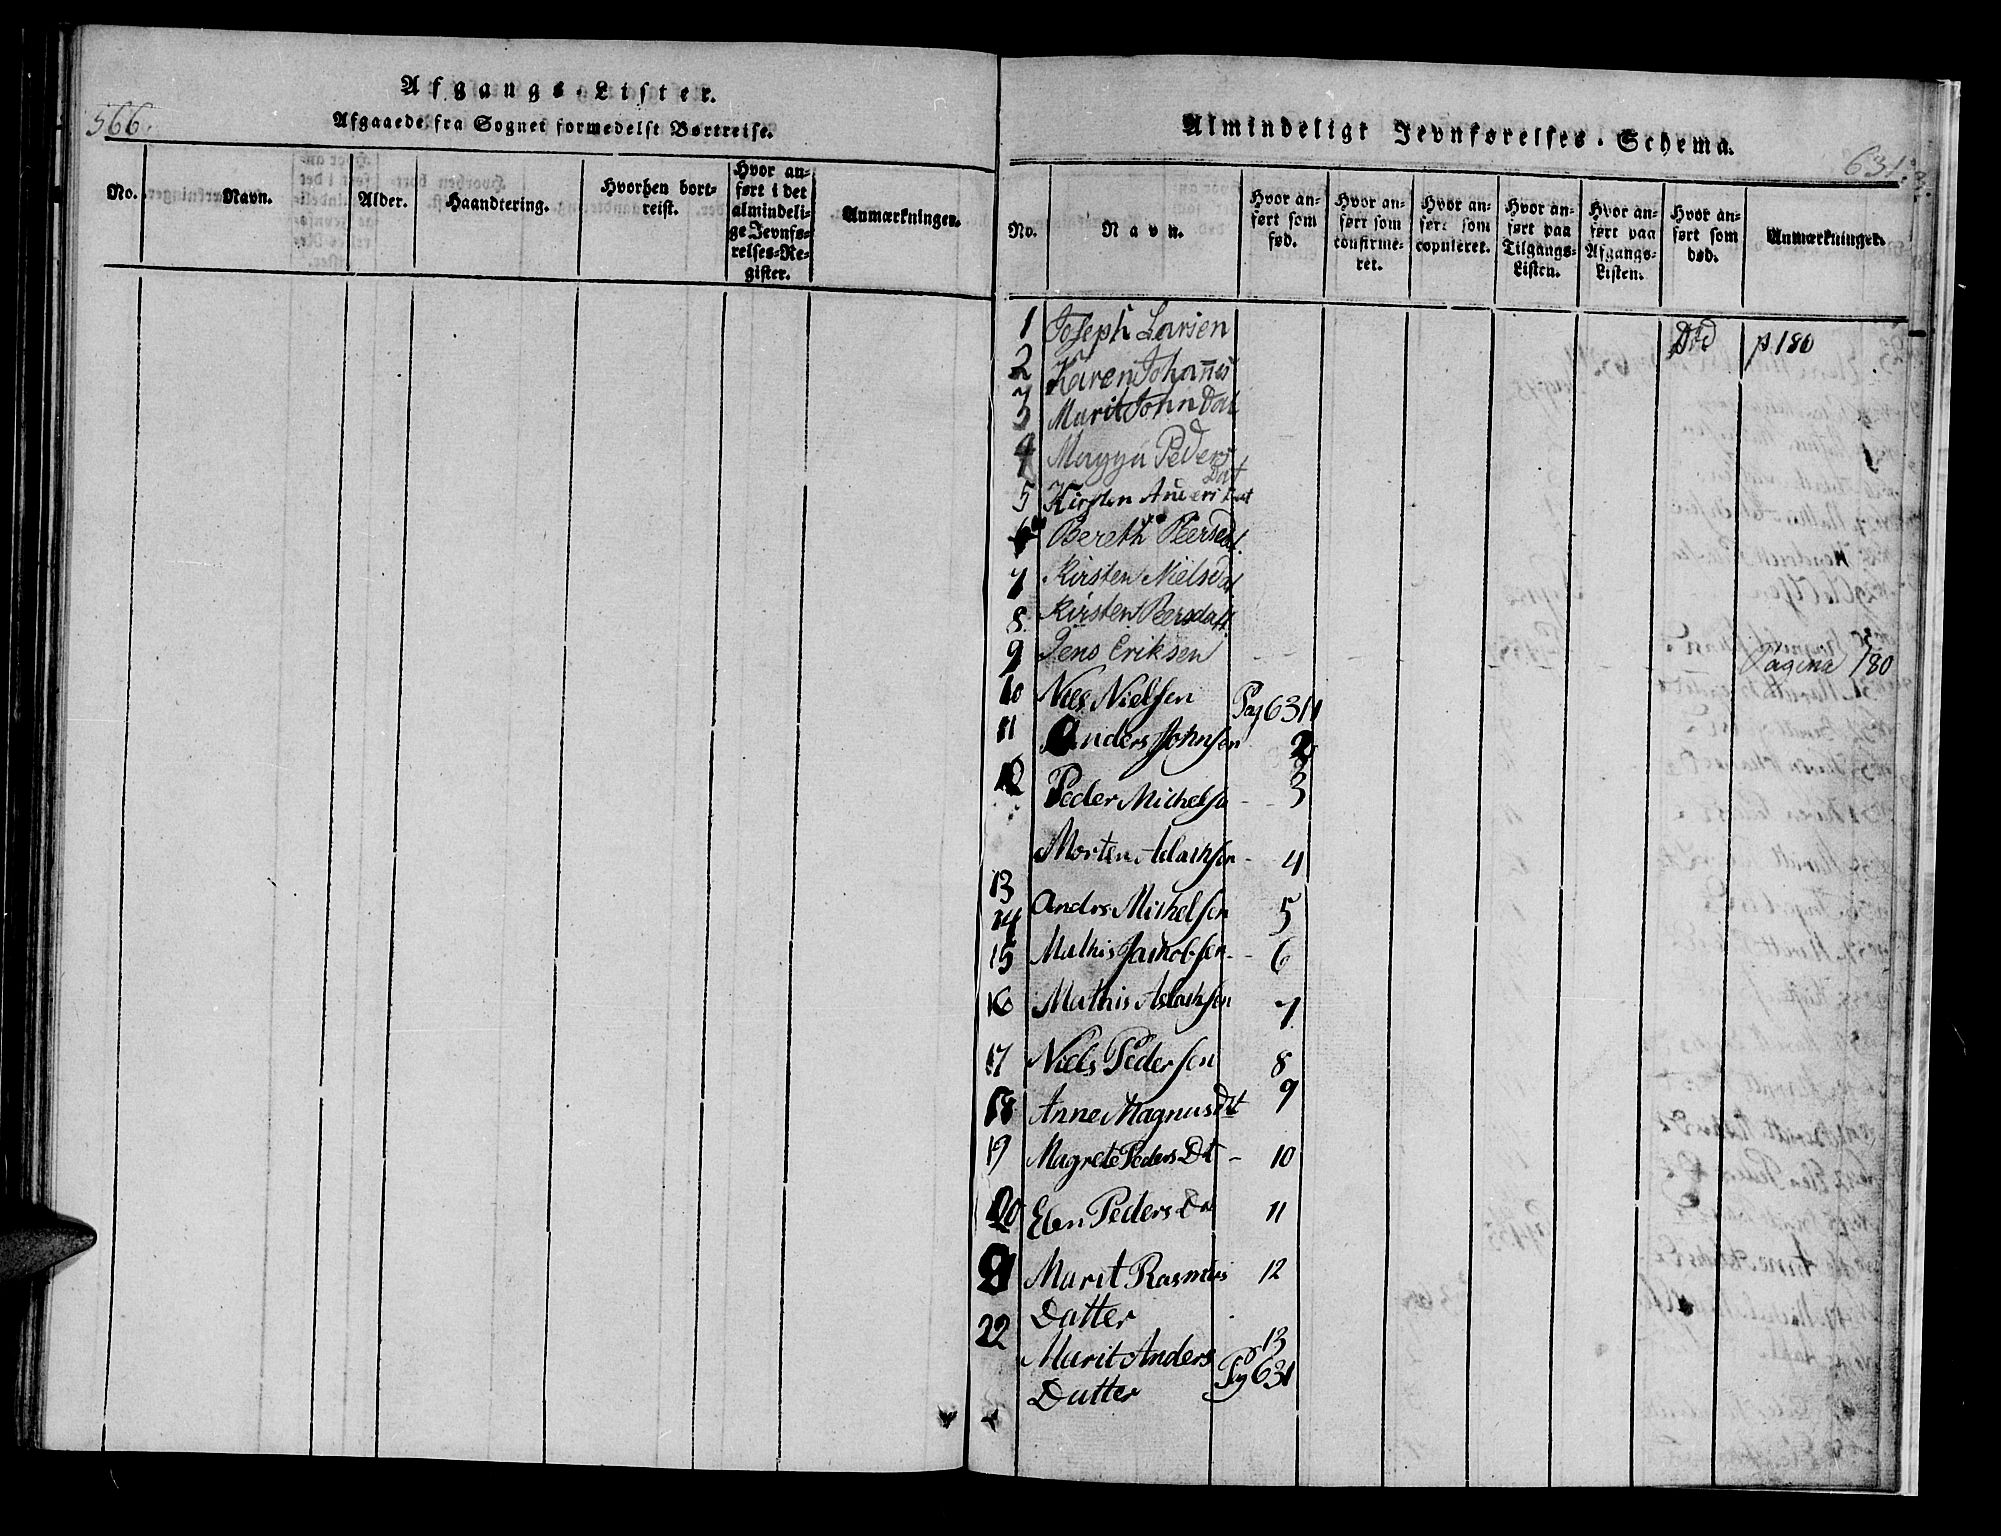 566.
Afgangs-Lister.
Afgaaede fra Sognet formedelst Bortreise.
No.
Navn.
Alder.
Haandtering.
Hvorhen bort-
reist.
Hvor an-
ført i det
almindeli-
ge Jevnfø-
relses-Re-
gister.
Anmærkninger.
Almindeligt Jevnførelses-Schema.
631.
No.
Navn.
Hvor an-
ført som
fød.
Hvor an-
ført som
confirme-
ret.
Hvor an-
ført som
copuleret.
Hvor an-
ført paa
Tilgangs-
Listen.
Hvor an-
ført paa
Afgangs-
Listen.
Hvor an-
ført som
død.
Anmærkninger.
1 Joseph Larsen Død p 180
2 Karen Johannis
3 Marit John Dat
4 Magga Peders
Dat
5 Kirsten Anders Dat
6 Bereth Peersdat.
7 Kirsten Nielsdat
8 Kirsten Peersdatt.
9 Jens Eriksen Pagina 180
10 Niels Nielsen Pag 631 1
11 Anders Johnsen 2
12 Peder Michelsn 3
Morten Aslachsen 4
13
14 Anders Michelsen 5
15 Mathis Jachobsen 6
16 Mathis Aslachsen 7
17 Niels Pedersen 8
18 Anne Magnus Dt 9
19 Magrete Peders Dt 10
20 Elen Peders Da 11
21 Marit Rasmus 12
Datter
22 Marit Anders 13
Datter Pag 631